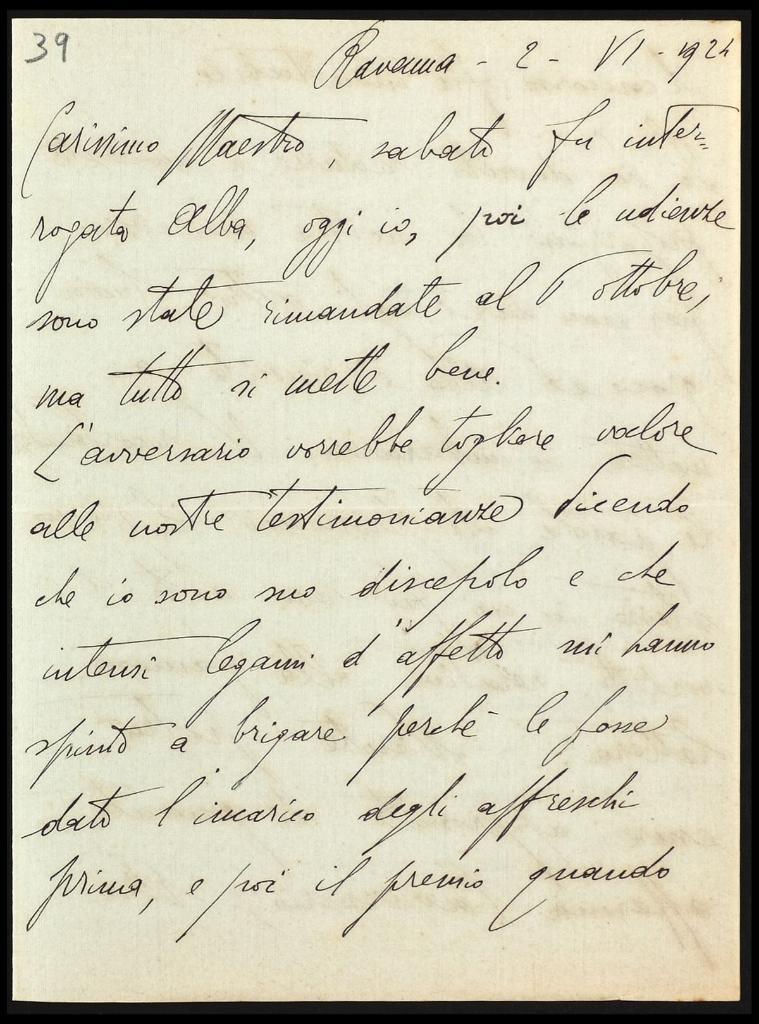 39
Ravenna - 2 - VI - 1924
Carissimo Maestro, sabato fu inter=
rogato Alba, oggi io, poi le udienze
sono state rimandate al 6 ottobre;
ma tutto si mette bene.
L'avversario vorrebbe togliere valore
alle nostre testimonianze dicendo
che io sono suo discepolo e che
intensi legami d'affetto mi hanno
spinto a brigare perchè le fosse
dato l'incarico degli affreschi
prima, e poi il premio quando